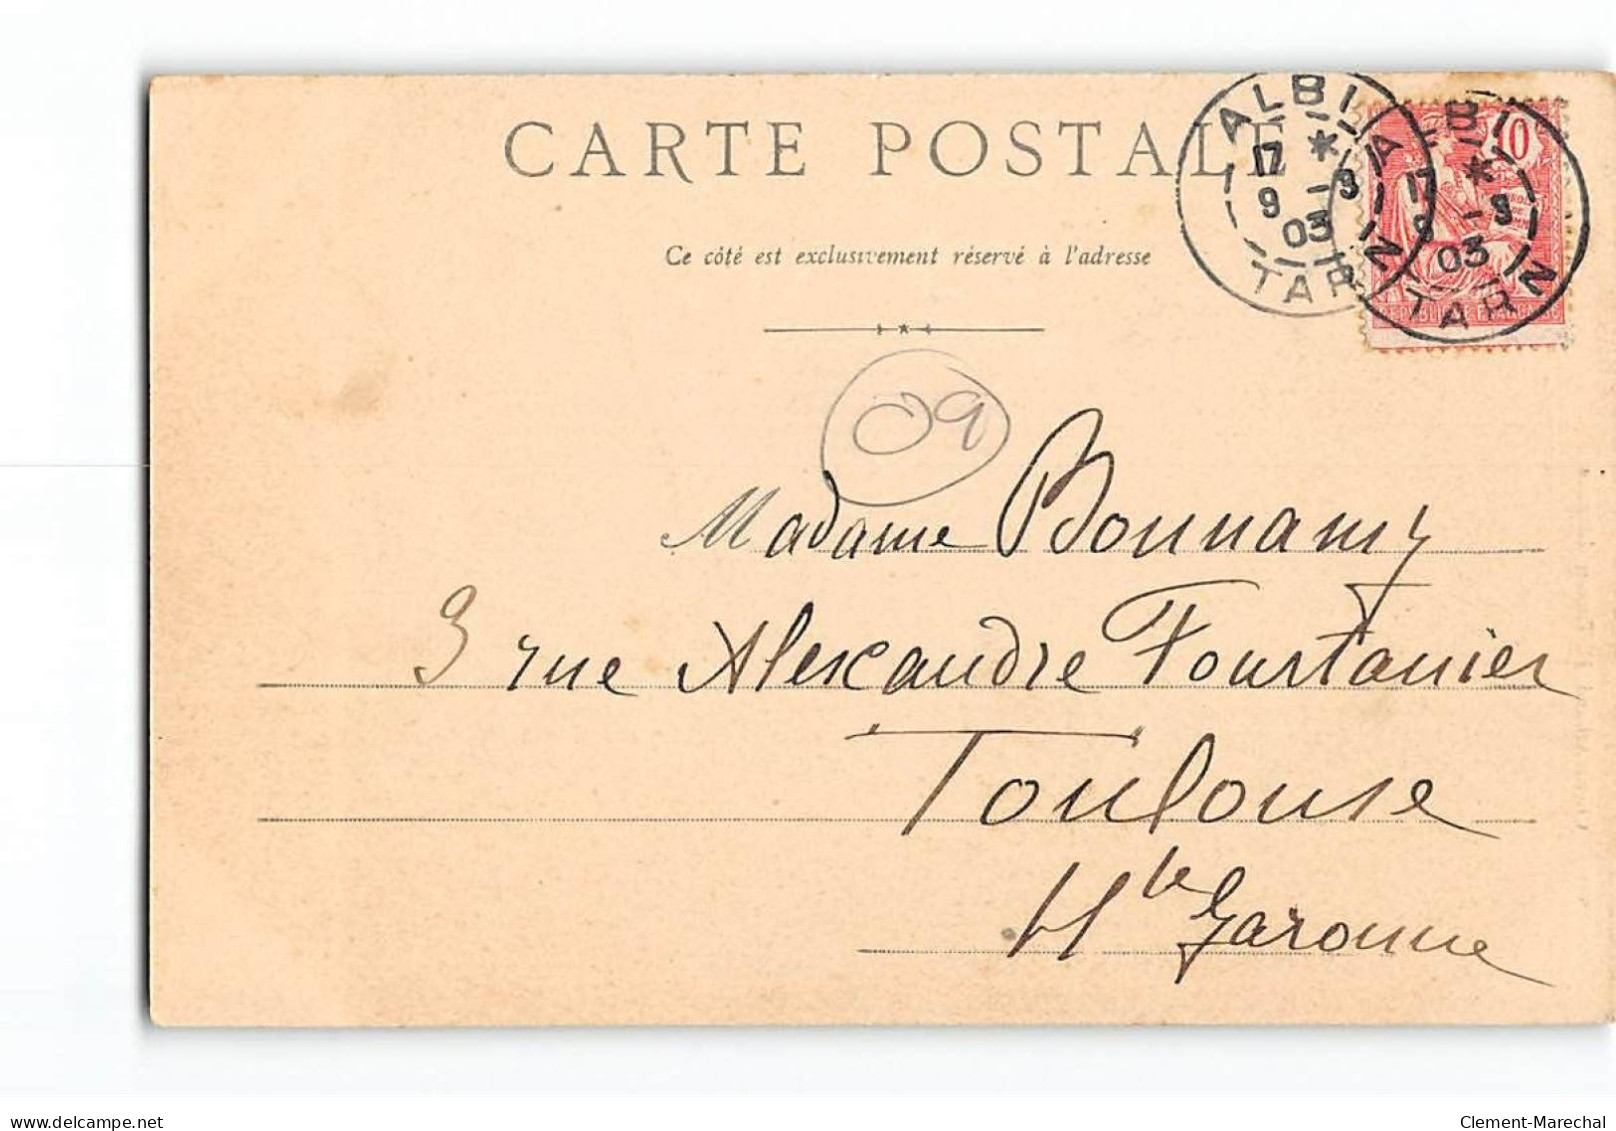 CARTE POSTALE
Ce côté est exclusivement réservé à l'adresse
ALBI
17
9 -3
03
TARN
ALBI
17
9 -3
03
TARN
10
REPUBLIQUE FRANÇAISE
09
Madame Bonnamy
3 rue Alexandre Fourtanier
Toulouse
Hte Garonne
Clement-Marechal